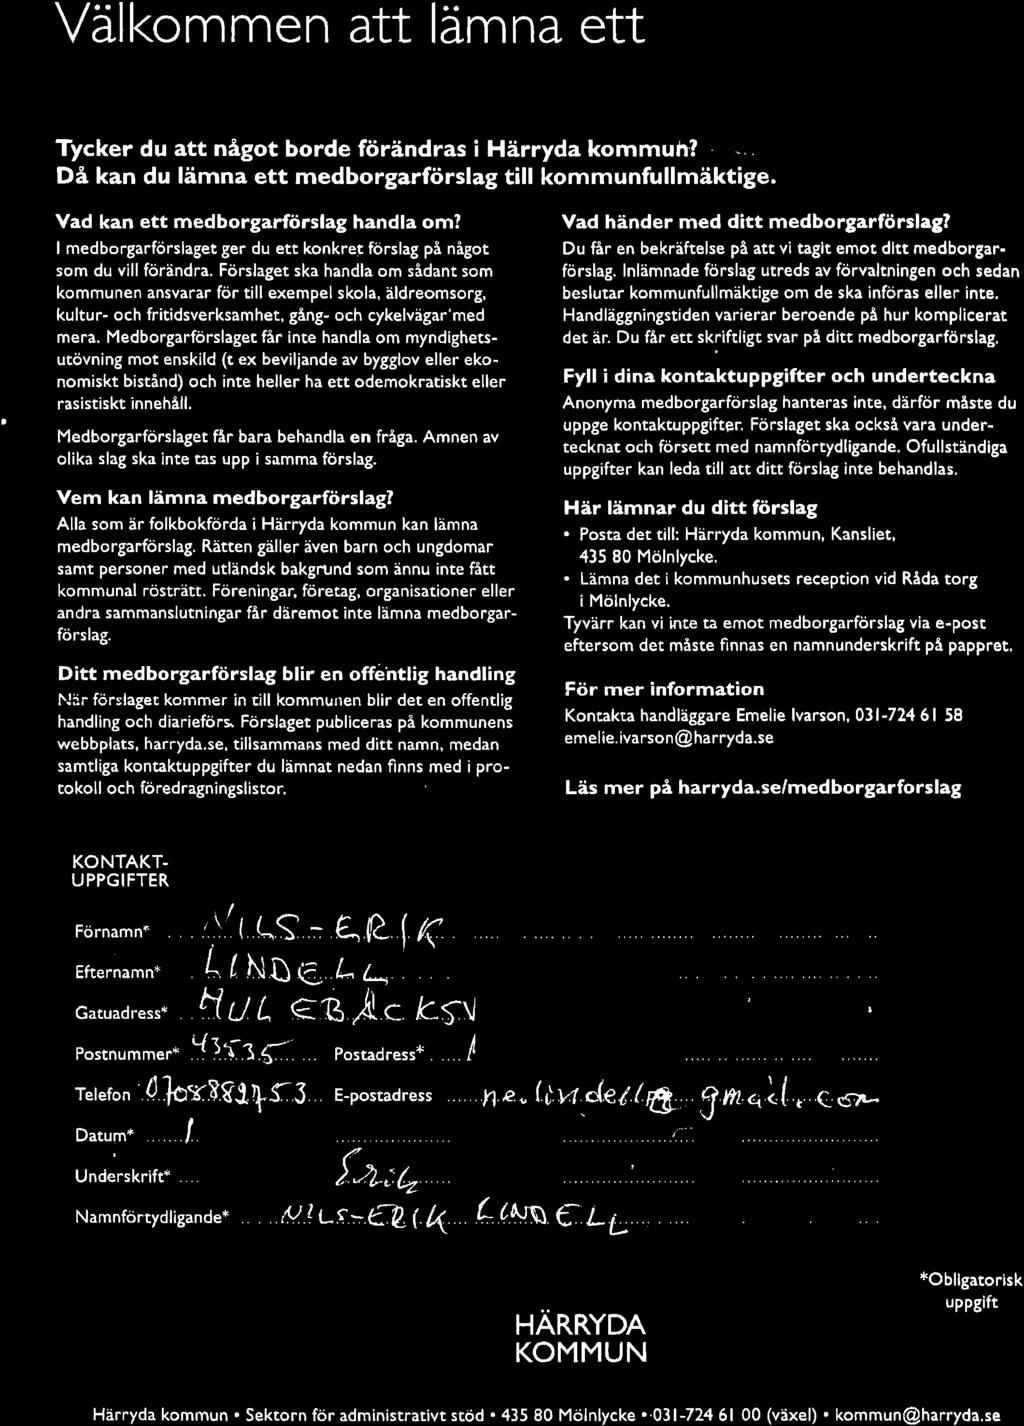 Välkommen att lämna ett
Tycker du att något borde förändras i Härryda kommun?
Då kan du lämna ett medborgarförslag till kommunfullmäktige.
Vad kan ett medborgarförslag handla om?
I medborgarförslaget ger du ett konkret förslag på något
som du vill förändra. Förslaget ska handla om sådant som
kommunen ansvarar för till exempel skola, äldreomsorg,
kultur- och fritidsverksamhet, gång- och cykelvägar med
mera. Medborgarförslaget får inte handla om myndighets-
utövning mot enskild (t ex beviljande av bygglov eller eko-
nomiskt bistånd) och inte heller ha ett odemokratiskt eller
rasistiskt innehåll.
Medborgarförslaget får bara behandla en fråga. Ämnen av
olika slag ska inte tas upp i samma förslag.
Vem kan lämna medborgarförslag?
Alla som är folkbokförda i Härryda kommun kan lämna
medborgarförslag. Rätten gäller även barn och ungdomar
samt personer med utländsk bakgrund som ännu inte fått
kommunal rösträtt. Föreningar, företag, organisationer eller
andra sammanslutningar får däremot inte lämna medborgar-
förslag.
Ditt medborgarförslag blir en offentlig handling
När förslaget kommer in till kommunen blir det en offentlig
handling och diarieförs. Förslaget publiceras på kommunens
webbplats, harryda.se, tillsammans med ditt namn, medan
samtliga kontaktuppgifter du lämnat nedan finns med i pro-
tokoll och föredragningslistor.
Vad händer med ditt medborgarförslag?
Du får en bekräftelse på att vi tagit emot ditt medborgar-
förslag. Inlämnade förslag utreds av förvaltningen och sedan
beslutar kommunfullmäktige om de ska införas eller inte.
Handläggningstiden varierar beroende på hur komplicerat
det är. Du får ett skriftligt svar på ditt medborgarförslag.
Fyll i dina kontaktuppgifter och underteckna
Anonyma medborgarförslag hanteras inte, därför måste du
uppge kontaktuppgifter. Förslaget ska också vara under-
tecknat och försett med namnförtydligande. Ofullständiga
uppgifter kan leda till att ditt förslag inte behandlas.
Här lämnar du ditt förslag
• Posta det till: Härryda kommun, Kansliet,
435 80 Mölnlycke.
• Lämna det i kommunhusets reception vid Råda torg
i Mölnlycke.
Tyvärr kan vi inte ta emot medborgarförslag via e-post
eftersom det måste finnas en namnunderskrift på pappret.
För mer information
Kontakta handläggare Emelie Ivarson, 031-724 61 58
emelie.ivarson@harryda.se
Läs mer på harryda.se/medborgarforslag
KONTAKT-
UPPGIFTER
Förnamn* NILS-ERIK
Efternamn* LINDELL
Gatuadress* HULEBÄCKSV
Postnummer* 43535 Postadress*
Telefon E-postadress ne.lindell@gmail.com
Datum*
Underskrift*
Namnförtydligande* NILS-ERIK LINDELL
*Obligatorisk
uppgift
HÄRRYDA
KOMMUN
Härryda kommun • Sektorn för administrativt stöd • 435 80 Mölnlycke • 031-724 61 00 (växel) • kommun@harryda.se